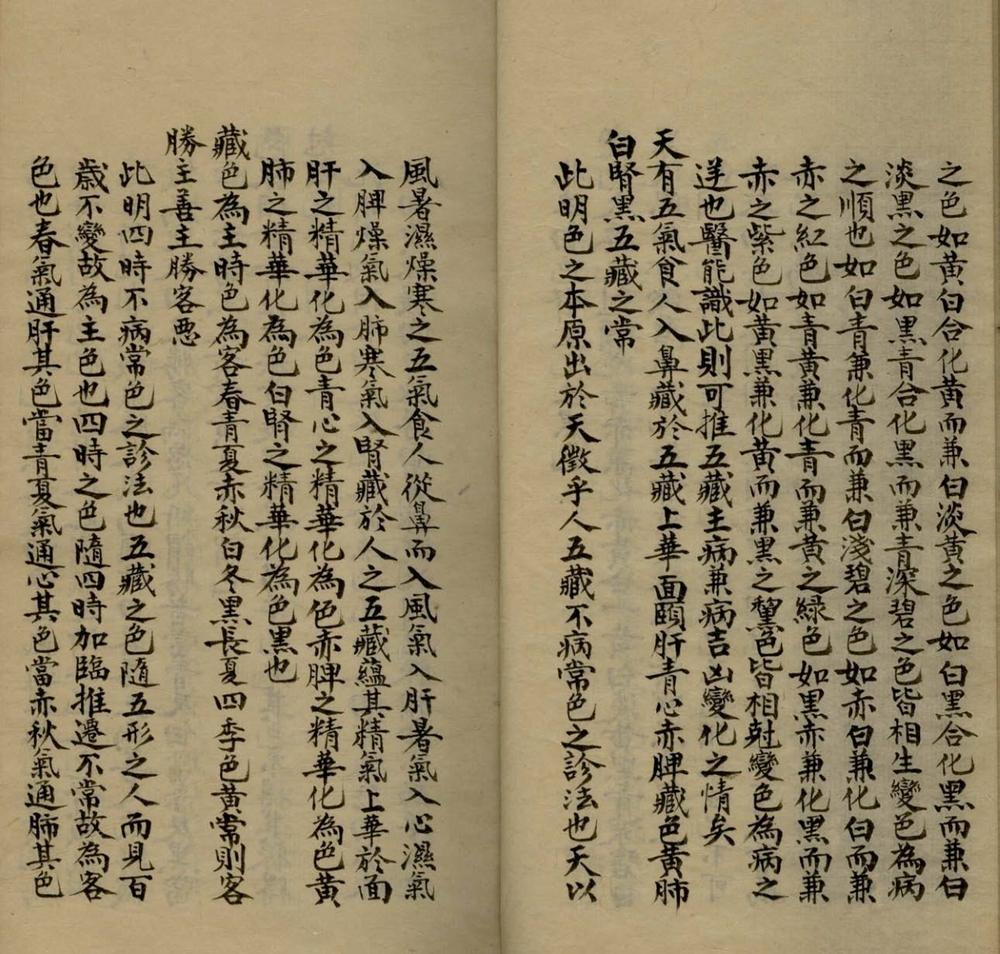 之色如黃白合化黃而兼白淡黃之色如白黑合化黑而兼白
淡黑之色如黑青合化黑而兼青深碧之色皆相生變色為病
之順也如白青兼化青而兼白淺碧之色如赤白兼化白而兼
赤之紅色如青黃兼化青而兼黃之綠色如黑赤兼化黑而兼
赤之紫色如黃黑兼化黃而兼黑之黧色皆相尅變色為病之
逆也醫能識此則可推五藏主病兼病吉凶變化之情矣
天有五氣食人入鼻藏於五藏上華面頤肝青心赤脾藏色黃肺
白腎黑五藏之常
此明色之本原出於天徵乎人五藏不病常色之診法也天以
風暑濕燥寒之五氣食人從鼻而入風氣入肝暑氣入心濕氣
入脾燥氣入肺寒氣入腎藏於人之五藏蘊其精氣上華於面
肝之精華化為色青心之精華化為色赤脾之精華化為色黃
肺之精華化為色白腎之精華化為色黑也
藏色為主時色為客春青夏赤秋白冬黑長夏四季色黃常則客
勝主善主勝客惡
此明四時不病常色之診法也五藏之色隨五形之人而見百
歲不變故為主色也四時之色隨四時加臨推遷不常故為客
色也春氣通肝其色當青夏氣通心其色當赤秋氣通肺其色